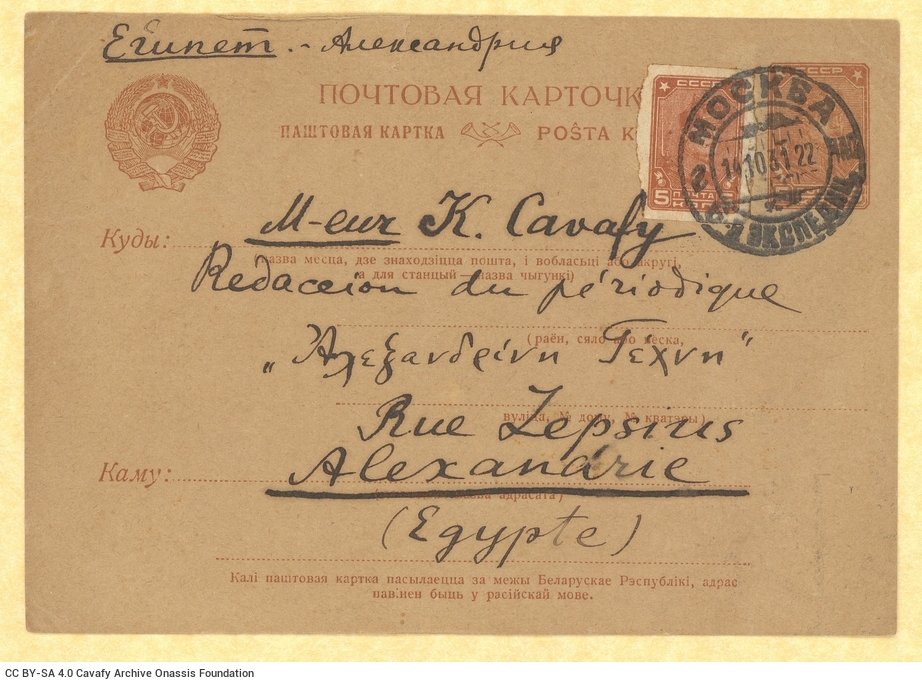 Египет. - Александрия
ПОЧТОВАЯ КАРТОЧК
ПАШТОВАЯ КАРТКА POŜTA K
СССР
СССР
5 ПОЧТА 5
КОП
МОСКВА
14 10 31 22
ЭКСПЕД
M-eur K. Cavafy
Куды:
(назва месца, дзе знаходзіцца пошта, і вобласьці або акругі,
а для станцый—назва чыгункі)
Redaccion du périodique
(раён, сяло або вёска,
„Αλεξανδρινη Τέχνη"
вуліца, № дому, № кватэры)
Rue Lepsius
Каму:
Alexandrie
адрасата)
(Egypte)
Калі паштовая картка пасылаецца за межы Беларускае Рэспублікі, адрас
павінен быць у расійскай мове.
CC BY-SA 4.0 Cavafy Archive Onassis Foundation